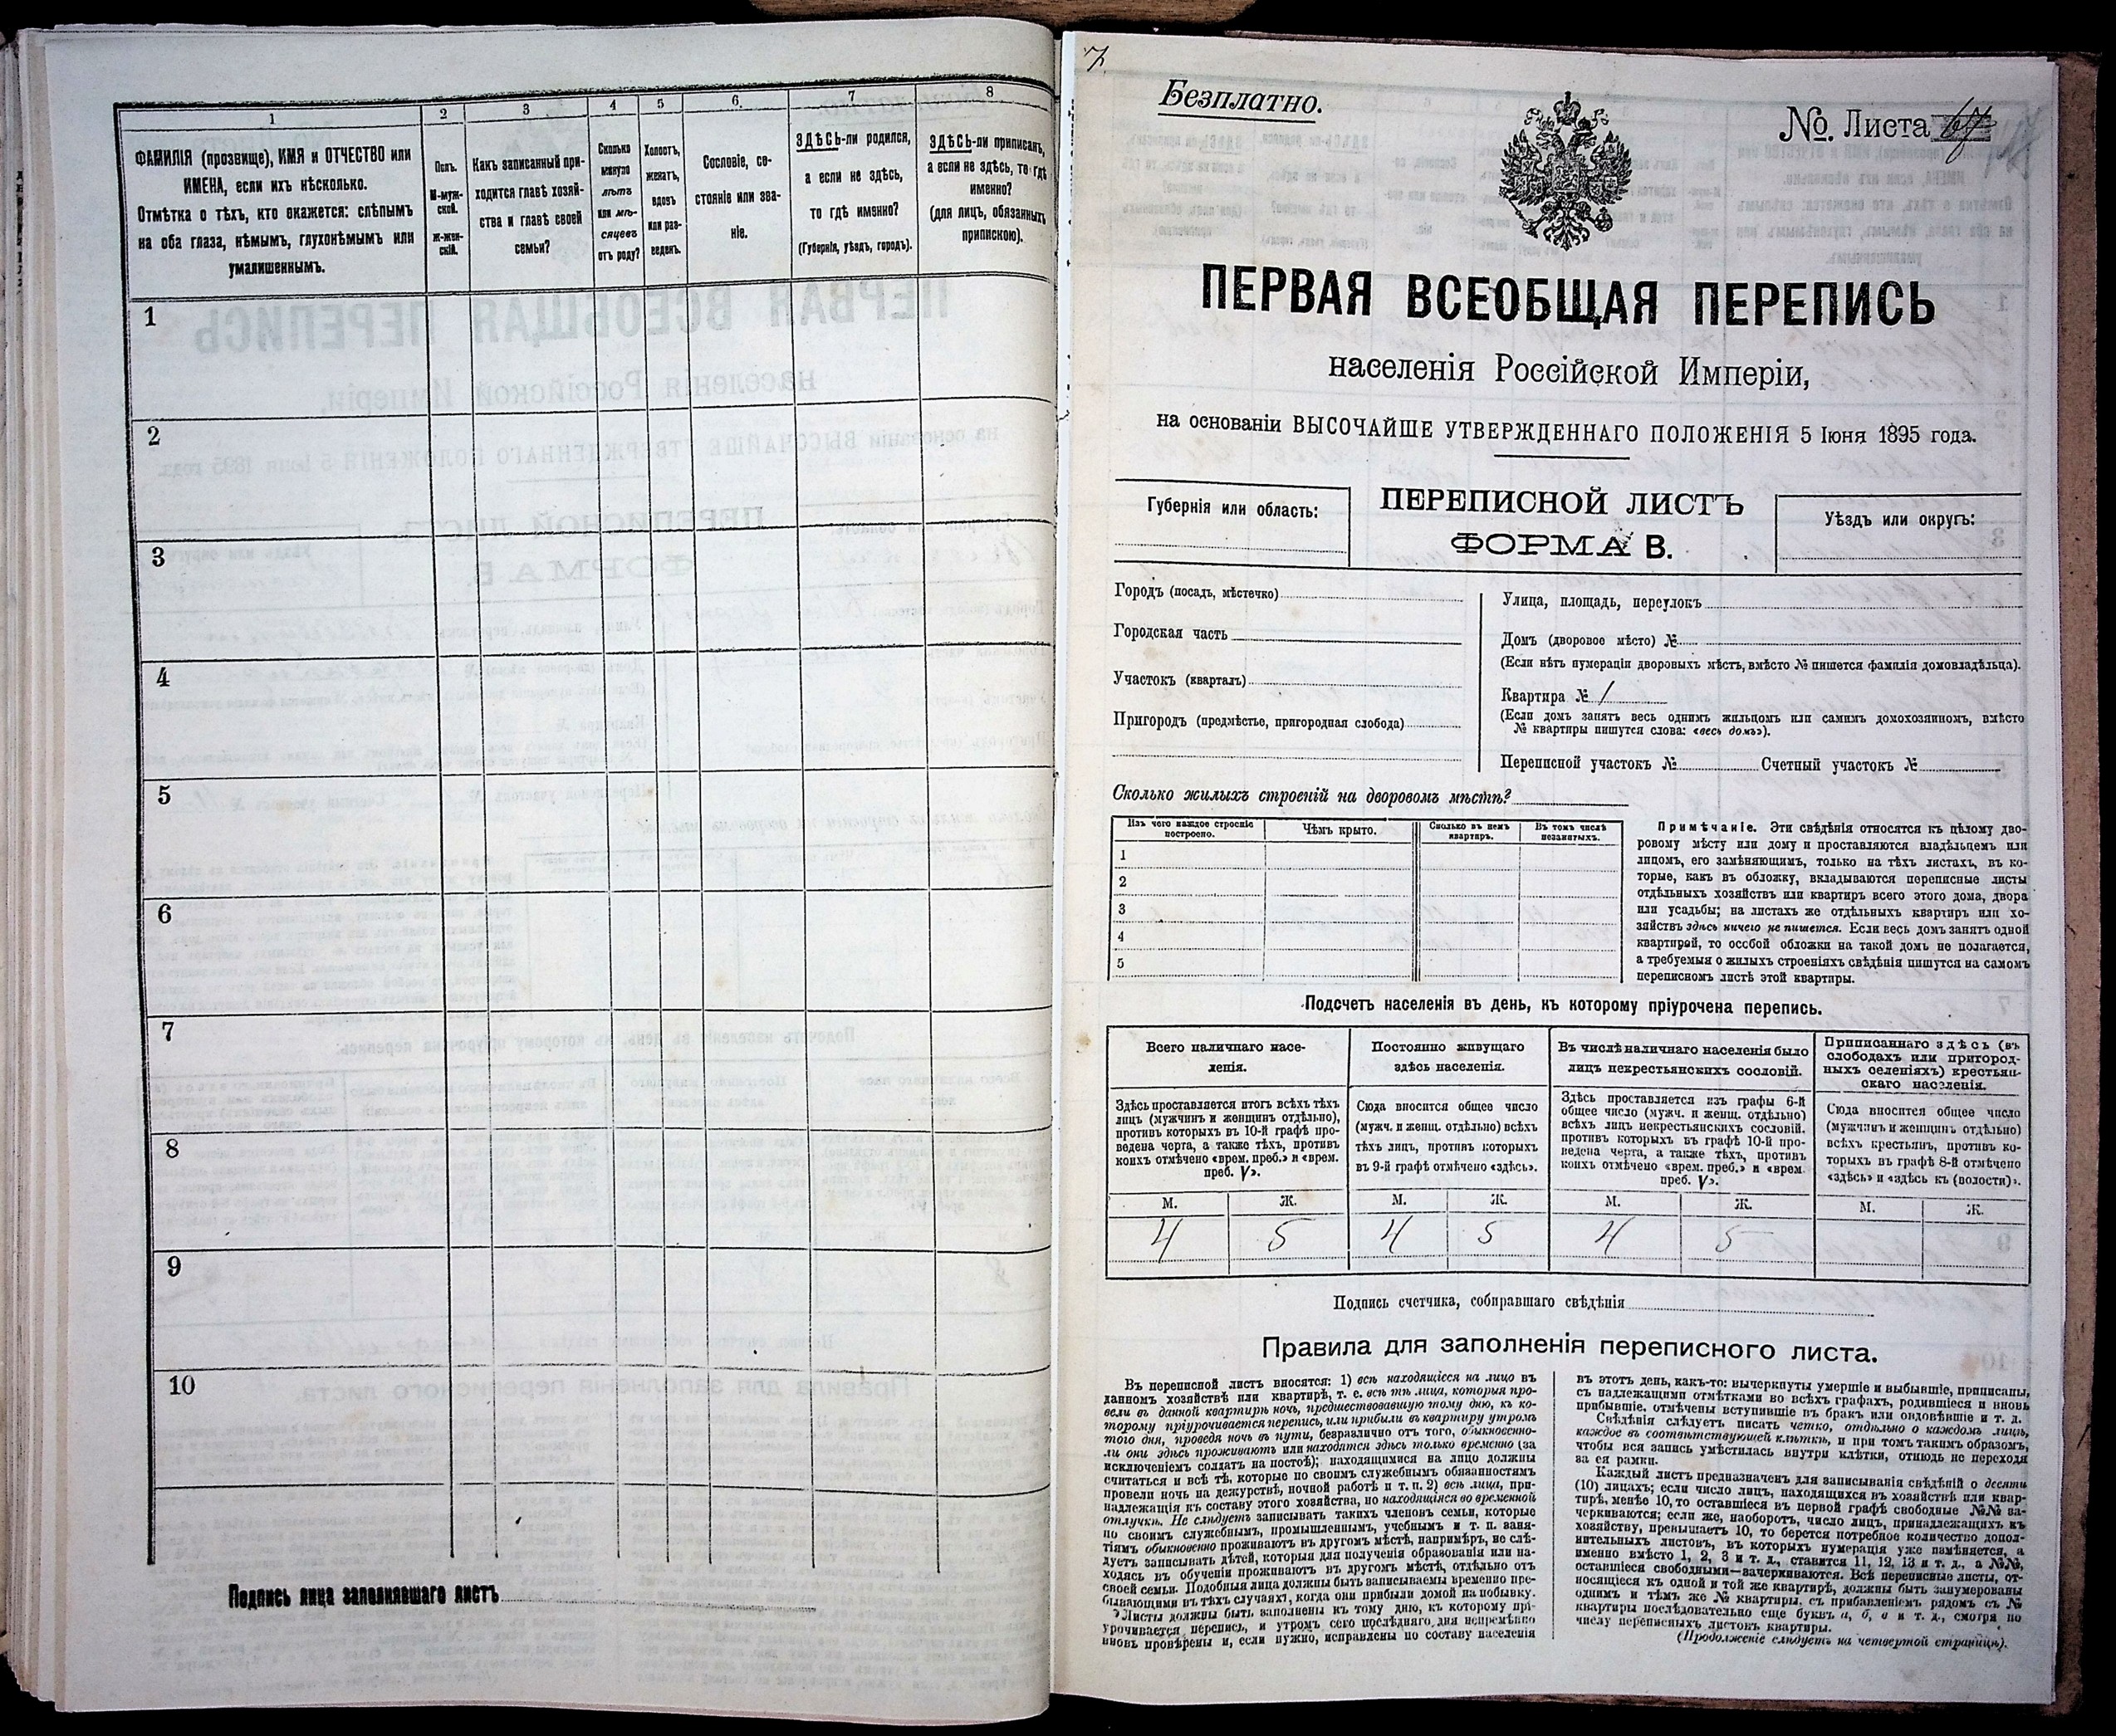 1
ФАМИЛІЯ (прозвище), ИМЯ и ОТЧЕСТВО или
ИМЕНА, если ихъ нѣсколько.
Отмѣтка о тѣхъ, кто окажется: слѣпымъ
на оба глаза, нѣмымъ, глухонѣмымъ или
умалишеннымъ.
2
Полъ.
М-муж-
ской.
Ж-жен-
скій.
3
Какъ записанный при-
ходится главѣ хозяй-
ства и главѣ своей
семьи?
4
Сколько
минуло
лѣтъ
или мѣ-
сяцевъ
отъ роду?
5
Холостъ,
женатъ,
вдовъ
или раз-
веденъ.
6.
Сословіе, со-
стояніе или зва-
ніе.
7
ЗДѢСЬ-ли родился,
а если не здѣсь,
то гдѣ именно?
(Губернія, уѣздъ, городъ).
8
ЗДѢСЬ-ли приписанъ,
а если не здѣсь, то гдѣ
именно?
(для лицъ, обязанныхъ
припискою).
1
2
3
4
5
6
7
8
9
10
Подпись лица заполнявшаго листъ
7.
Безплатно.
№ Листа 67
ПЕРВАЯ ВСЕОБЩАЯ ПЕРЕПИСЬ
населенія Россійской Имперіи,
на основаніи ВЫСОЧАЙШЕ УТВЕРЖДЕННАГО ПОЛОЖЕНІЯ 5 Іюня 1895 года.
Губернія или область:
ПЕРЕПИСНОЙ ЛИСТЪ
ФОРМА В.
Уѣздъ или округъ:
Городъ (посадъ, мѣстечко)
Городская часть
Участокъ (кварталъ)
Пригородъ (предмѣстье, пригородная слобода)
Улица, площадь, переулокъ
Домъ (дворовое мѣсто) №
(Если нѣтъ нумераціи дворовыхъ мѣстъ, вмѣсто № пишется фамилія домовладѣльца).
Квартира № 1
(Если домъ занятъ весь однимъ жильцомъ или самимъ домохозяиномъ, вмѣсто
№ квартиры пишутся слова: «весь домъ»).
Переписной участокъ № Счетный участокъ №
Сколько жилыхъ строеній на дворовомъ мѣстѣ?
Изъ чего каждое строеніе
построено.
Чѣмъ крыто.
Сколько въ немъ
квартиръ.
Въ томъ числѣ
незанятыхъ.
1
2
3
4
5
Примѣчаніе. Эти свѣдѣнія относятся къ цѣлому дво-
ровому мѣсту или дому и проставляются владѣльцемъ или
лицомъ, его замѣняющимъ, только на тѣхъ листахъ, въ ко-
торые, какъ въ обложку, вкладываются переписные листы
отдѣльныхъ хозяйствъ или квартиръ всего этого дома, двора
или усадьбы; на листахъ же отдѣльныхъ квартиръ или хо-
зяйствъ здѣсь ничего не пишется. Если весь домъ занятъ одной
квартирой, то особой обложки на такой домъ не полагается,
а требуемыя о жилыхъ строеніяхъ свѣдѣнія пишутся на самомъ
переписномъ листѣ этой квартиры.
Подсчетъ населенія въ день, къ которому пріурочена перепись.
Всего наличнаго насе-
ленія.
Здѣсь проставляется итогъ всѣхъ тѣхъ
лицъ (мужчинъ и женщинъ отдѣльно),
противъ которыхъ въ 10-й графѣ про-
ведена черта, а также тѣхъ, противъ
коихъ отмѣчено «врем. преб.» и «врем.
преб. V».
Постоянно живущаго
здѣсь населенія.
Сюда вносится общее число
(мужч. и женщ. отдѣльно) всѣхъ
тѣхъ лицъ, противъ которыхъ
въ 9-й графѣ отмѣчено «здѣсь».
Въ числѣ наличнаго населенія было
лицъ некрестьянскихъ сословій.
Здѣсь проставляется изъ графы 6-й
общее число (мужч. и женщ. отдѣльно)
всѣхъ лицъ некрестьянскихъ сословій,
противъ которыхъ въ графѣ 10-й про-
ведена черта, а также тѣхъ, противъ
коихъ отмѣчено «врем. преб.» и «врем.
преб. V».
Приписаннаго здѣсь (въ
слободахъ или пригород-
ныхъ селеніяхъ) крестьян-
скаго населенія.
Сюда вносится общее число
(мужчинъ и женщинъ отдѣльно)
всѣхъ крестьянъ, противъ ко-
торыхъ въ графѣ 8-й отмѣчено
«здѣсь» и «здѣсь къ (волости)».
М. Ж. М. Ж. М. Ж. М. Ж.
4 5 4 5 4 5
Подпись счетчика, собиравшаго свѣдѣнія
Правила для заполненія переписного листа.
Въ переписной листъ вносятся: 1) всѣ находящіеся на лицо въ
данномъ хозяйствѣ или квартирѣ, т. е. всѣ тѣ лица, которыя про-
вели въ данной квартирѣ ночь, предшествовавшую тому дню, къ ко-
торому пріурочивается перепись, или прибыли въ квартиру утромъ
того дня, проведя ночь въ пути, безразлично отъ того, обыкновенно-
ли они здѣсь проживаютъ или находятся здѣсь только временно (за
исключеніемъ солдатъ на постоѣ); находящимися на лицо должны
считаться и всѣ тѣ, которые по своимъ служебнымъ обязанностямъ
провели ночь на дежурствѣ, ночной работѣ и т. п. 2) всѣ лица, при-
надлежащія къ составу этого хозяйства, но находящіяся во временной
отлучкѣ. Не слѣдуетъ записывать такихъ членовъ семьи, которые
по своимъ служебнымъ, промышленнымъ, учебнымъ и т. п. заня-
тіямъ обыкновенно проживаютъ въ другомъ мѣстѣ, напримѣръ, не слѣ-
дуетъ записывать дѣтей, которыя для полученія образованія или на-
ходясь въ обученіи проживаютъ въ другомъ мѣстѣ, отдѣльно отъ
своей семьи. Подобныя лица должны быть записываемы временно пре-
бывающими въ тѣхъ случаяхъ, когда они прибыли домой на побывку.
Листы должны быть заполнены къ тому дню, къ которому прі-
урочивается перепись, и утромъ сего послѣдняго дня непремѣнно
вновь провѣрены и, если нужно, исправлены по составу населенія
въ этотъ день, какъ-то: вычеркнуты умершіе и выбывшіе, приписаны,
съ надлежащими отмѣтками во всѣхъ графахъ, родившіеся и вновь
прибывшіе, отмѣчены вступившіе въ бракъ или овдовѣвшіе и т. д.
Свѣдѣнія слѣдуетъ писать четко, отдѣльно о каждомъ лицѣ,
каждое въ соотвѣтствующей клѣткѣ, и при томъ такимъ образомъ,
чтобы вся запись умѣстилась внутри клѣтки, отнюдь не переходя
за ея рамки.
Каждый листъ предназначенъ для записыванія свѣдѣній о десяти
(10) лицахъ; если число лицъ, находящихся въ хозяйствѣ или квар-
тирѣ, менѣе 10, то оставшіеся въ первой графѣ свободные №№ за-
черкиваются; если же, наоборотъ, число лицъ, принадлежащихъ къ
хозяйству, превышаетъ 10, то берется потребное количество допол-
нительныхъ листовъ, въ которыхъ нумерація уже измѣняется, а
именно вмѣсто 1, 2, 3 и т. д., ставится 11, 12, 13 и т. д., а №№,
оставшіеся свободными—зачеркиваются. Всѣ переписные листы, от-
носящіеся къ одной и той же квартирѣ, должны быть занумерованы
однимъ и тѣмъ же № квартиры, съ прибавленіемъ рядомъ съ №
квартиры послѣдовательно еще буквъ а, б, в и т. д., смотря по
числу переписныхъ листовъ квартиры.
(Продолженіе слѣдуетъ на четвертой страницѣ).